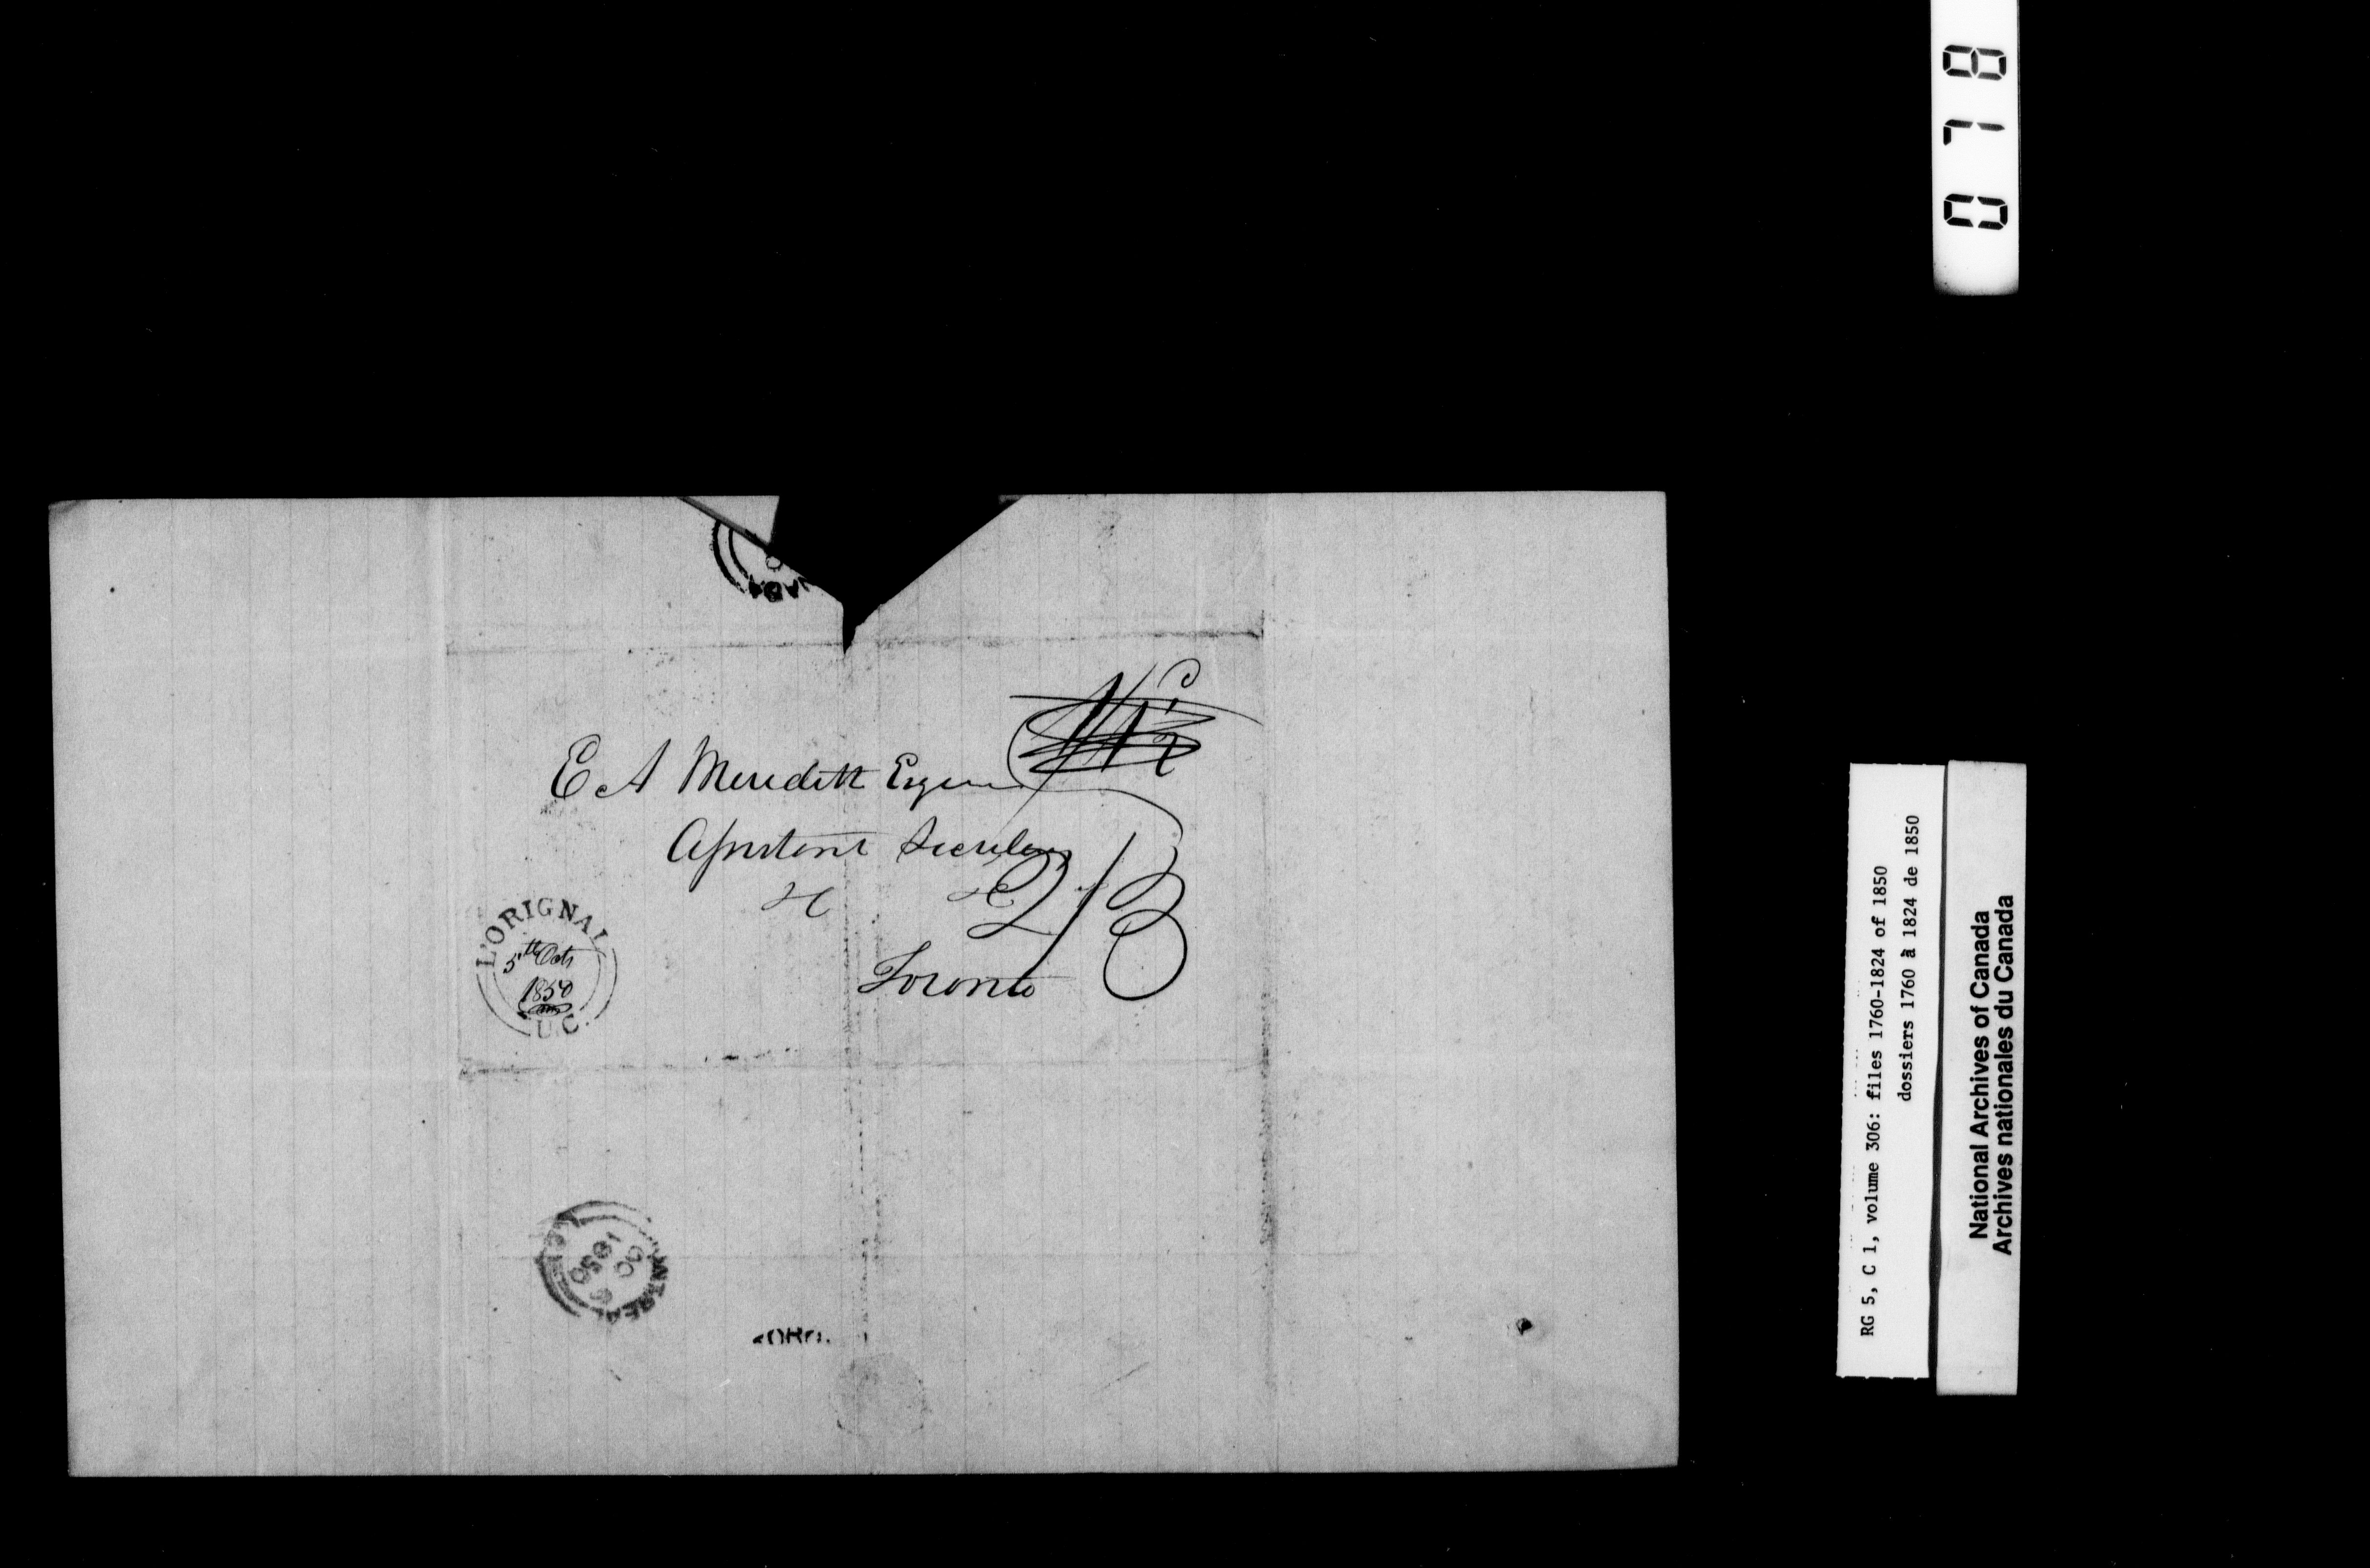 E A Meredith Esquire
Assistant Secretary
&c &c
2/3
Toronto
L'ORIGNAL
5th Octr
1850
U.C.
NADA
MONTREAL
OC
1850
0718
RG 5, C 1, volume 306: files 1760-1824 of 1850
dossiers 1760 à 1824 de 1850
National Archives of Canada
Archives nationales du Canada